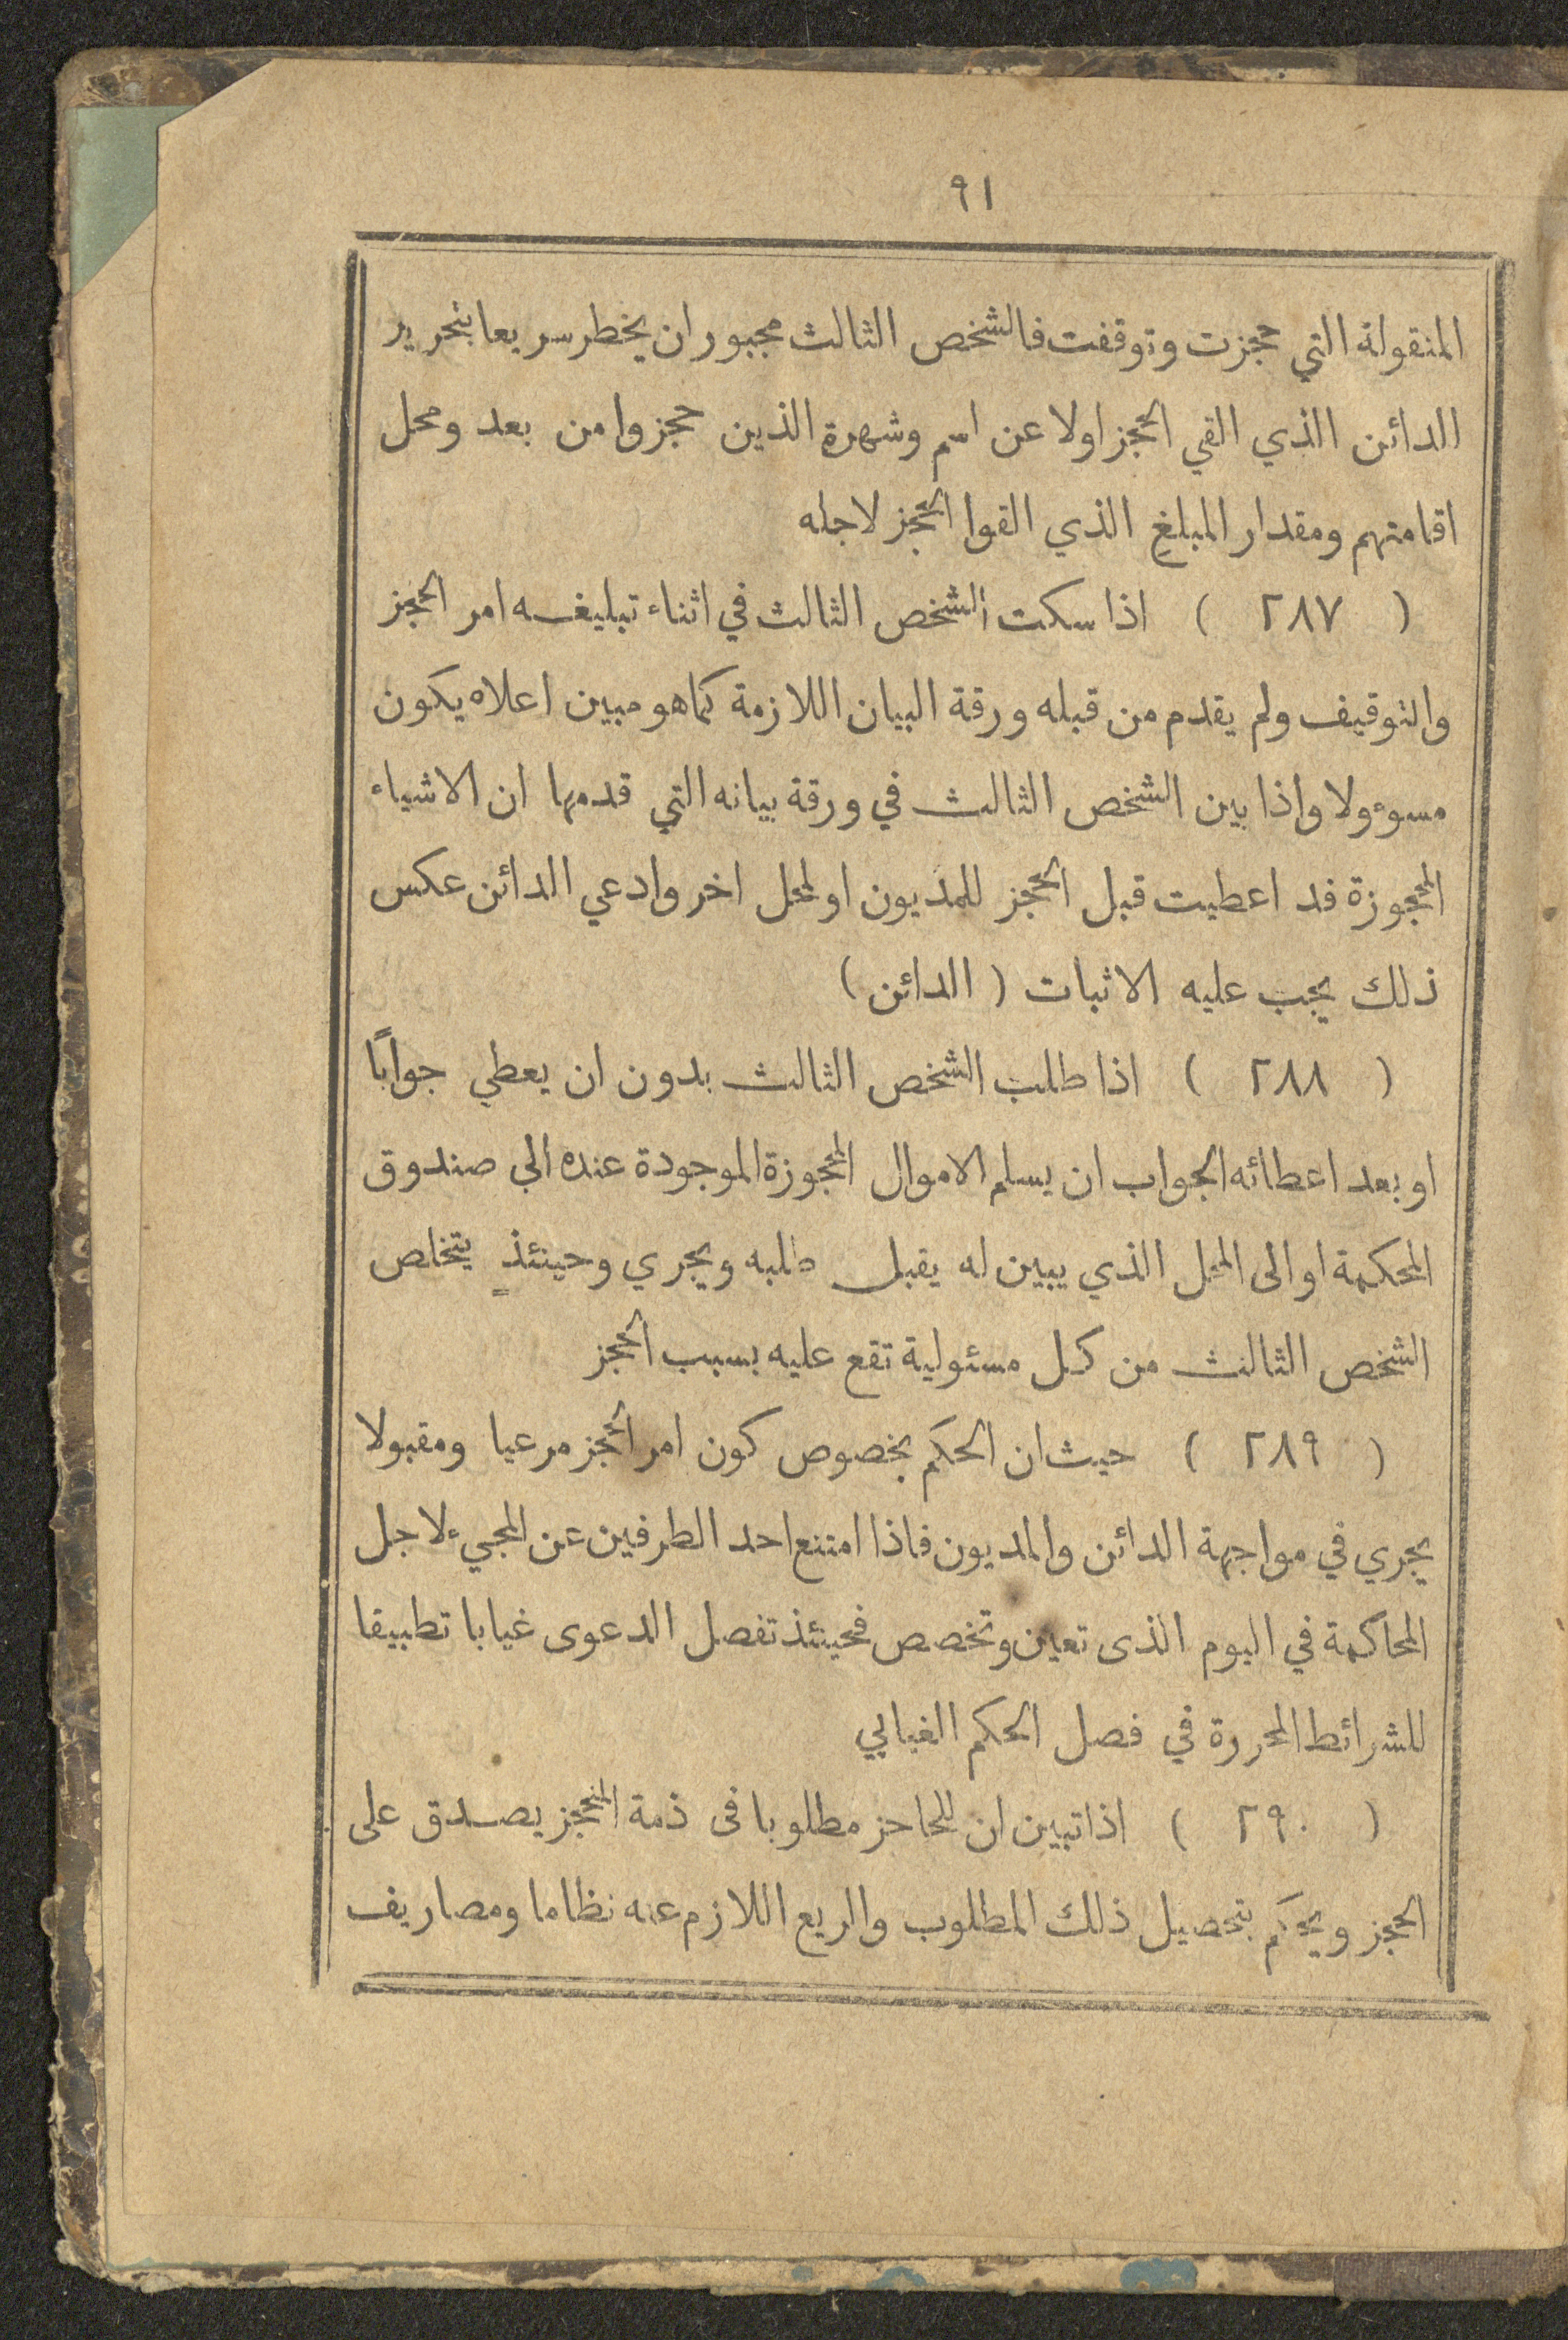 ٩١
المنقولة التي حجزت وتوقفت فالشخص الثالث مجبور ان يخطر سريعا بتحرير
الدائن الذي القي الحجز اولا عن اسم وشهرة الذين حجزوا من بعد ومحل
اقامتهم ومقدار المبلغ الذي القوا الحجز لاجله
( ٢٨٧ ) اذا سكت الشخص الثالث في اثناء تبليغه امر الحجز
والتوقيف ولم يقدم من قبله ورقة البيان اللازمة كما هو مبين اعلاه يكون
مسوءولا واذا بين الشخص الثالث في ورقة بيانه التي قدمها ان الاشياء
المحجوزة قد اعطيت قبل الحجز للمديون او لمحل اخر وادعي الدائن عكس
ذلك يجب عليه الاثبات ( الدائن )
( ٢٨٨ ) اذا طلب الشخص الثالث بدون ان يعطي جوابًا
او بعد اعطائه الجواب ان يسلم الاموال المحجوزة الموجودة عنده الي صندوق
المحكمة او الى المحل الذي يبين له يقبل طلبه ويجري وحينئذٍ يتخلص
الشخص الثالث من كل مسئولية تقع عليه بسبب الحجز
( ٢٨٩ ) حيث ان الحكم بخصوص كون امر الحجز مرعيا ومقبولا
يجري في مواجهة الدائن والمديون فاذا امتنع احد الطرفين عن المجيء لاجل
المحاكمة في اليوم الذى تعين وتخصص فحينئذ تفصل الدعوى غيابا تطبيقا
للشرائط المحررة في فصل الحكم الغيابي
( ٢٩٠ ) اذا تبين ان للحاجز مطلوبا فى ذمة المنحجز يصدق على
الحجز ويحكم بتحصيل ذلك المطلوب والريع اللازم عنه نظاما ومصاريف